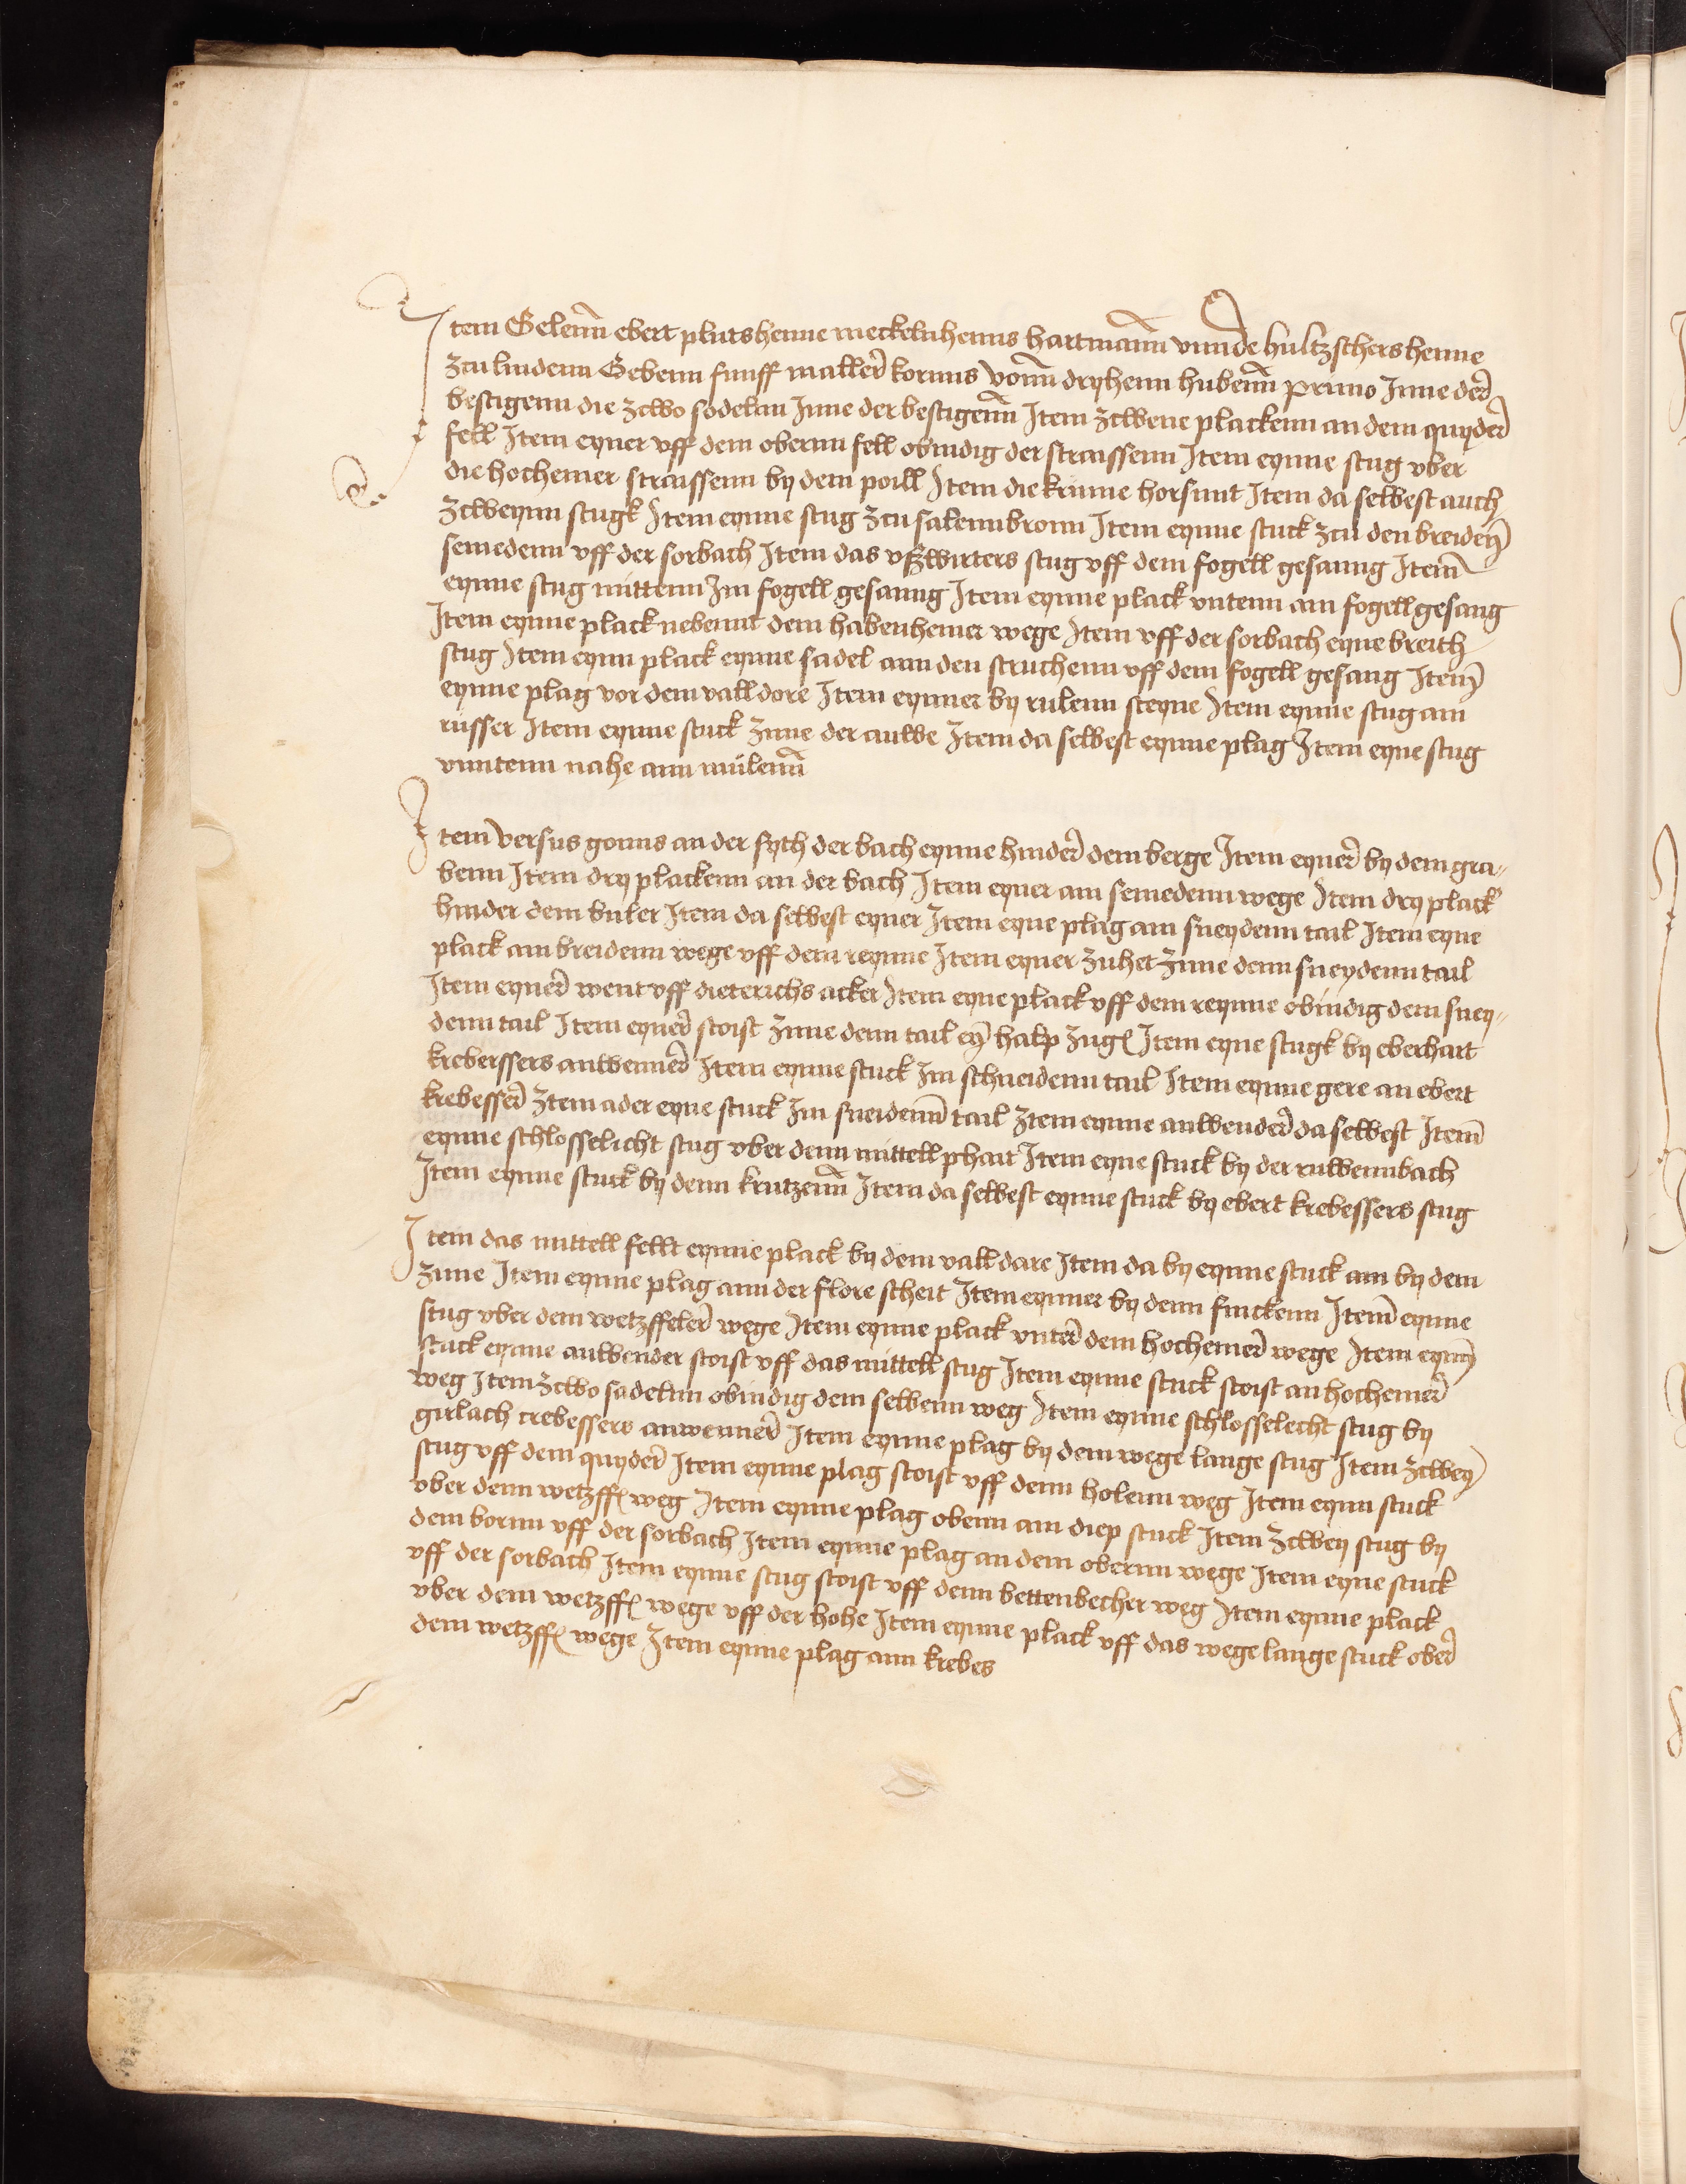 Item Gelenn ebert plutshenne meckelnhenns hartmann unnde hultzschershenne
zcu lindenn Gebenn funff mallter kornns vonn dryhenn hubenn primo Inne der
bestigenn die zcwo sodelnn Inne der bestigenn Item zcwene plackenn an dem quyder
fell Item eyner uff dem obernn fell obindig der straissenn Item eynne stug uber
die hochemer straissenn by dem poill Item die krume horsunt Item da selbest auch
zcweynn stugk Item eynne stug zcu salennbronn Item eynne stuck zcu den breiden
semedenn uff der sorbach Item das ußwirters stug uff dem fogell gesanng Item
eynne stug mittenn Im fogell gesanng Item eynne plack untenn am fogell gesang
Item eynne plack nebennt dem habenhemer wege Item uff der sorbach eyne breith
stug Item eynn plack eynne sadel ann den struchenn uff dem fogell gesang Item
eynne plag vor dem vall dore Item eynner by rulenn steyne Item eynne stug am
russer Item eynne stuck Inne der auwe Item da selbest eynne plag Item eyne stug
unntenn nahe ann mülenn
Item versus gonns an der syth der bach eynne hinder dem berge Item eyner by dem gra-
benn Item dry plackenn an der bach Item eyner am semedenn wege Item dry plack
hinder dem buler Item da selbest eyner Item eyne plag am sneydenn tail Item eyne
plack am breidenn wege uff dem reynne Item eyner zuhet Inne denn sneydenn tail
Item eyner went uff dieterichs acker Item eyne plack uff dem reynne obindig dem sney-
denn tail Item eyner stoist Inne denn tail ey halp zug Item eyne stugk by eberhart
krebeissers anwenner Item eynne stuck Im schneidenn tail Item eynne gere an ebert
krebesser Item ader eyne stuck Im sneidenn tail Item eynne anwender da selbest Item
eynne schlosselicht stug uber denn mittell phait Item eyne stuck by der ruwennbach
Item eynne stuck by denn krutzenn Item da selbest eynne stuck by ebert krebessers stug
Item das mittell fellt eynne plack by dem vall dare Item da by eynne stuck am by dem
zune Item eynne plag ann der flore scheit Item eynner by denn finckenn Item eynne
stug uber dem wetzffeler wege Item eynne plack unter dem hochemer wege Item eynn
stuck eynne anwender stoist uff das mittell stug Item eynne stuck stoist an hochemer
weg Item zcwo sadelnn obindig dem selbenn weg Item eynne schlosselecht stug by
girlach crebessers anwenner Item eynne plag by dem wege lange stug Item zcwey
stug uff dem quyder Item eynne plag stoist uff denn holenn weg Item eynn stuck
uber denn wetzff weg Item eynne plag obenn am diep stuck Item zcwey stug by
dem bornn uff der sorbach Item eynne plag an dem obernn wege Item eyne stuck
uff der sorbach Item eynne stug stoist uff denn bettenbecher weg Item eynne plack
uber dem wetzff wege uff der hohe Item eynne plack uff das wege lange stuck ober
dem wetzff wege Item eynne plag ann krebes